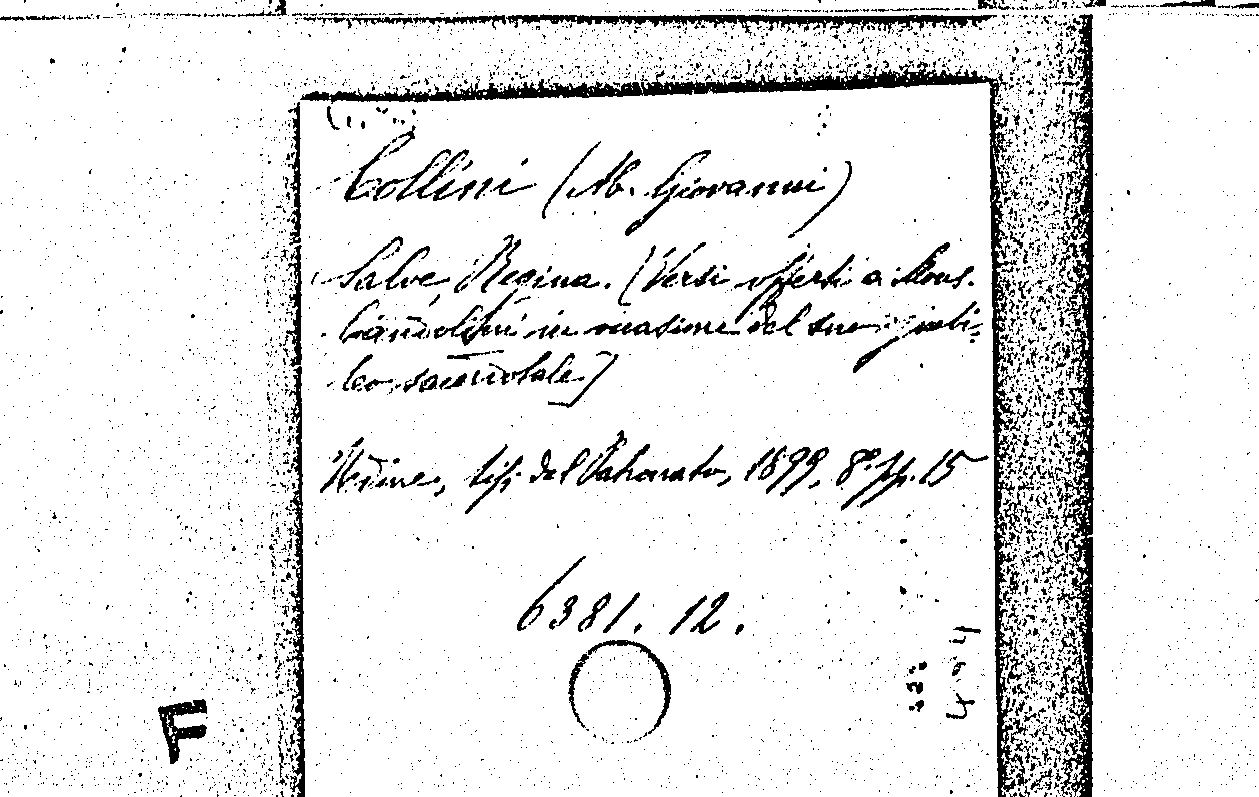 Collini (Ab. Giovanni)
Salve, Regina. (Versi offerti a Mons.
in occasione del suo giubi-
leo sacerdotale)
Udine, tip. del Patronato, 1899, 8° pp. 15
6381. 12.
F